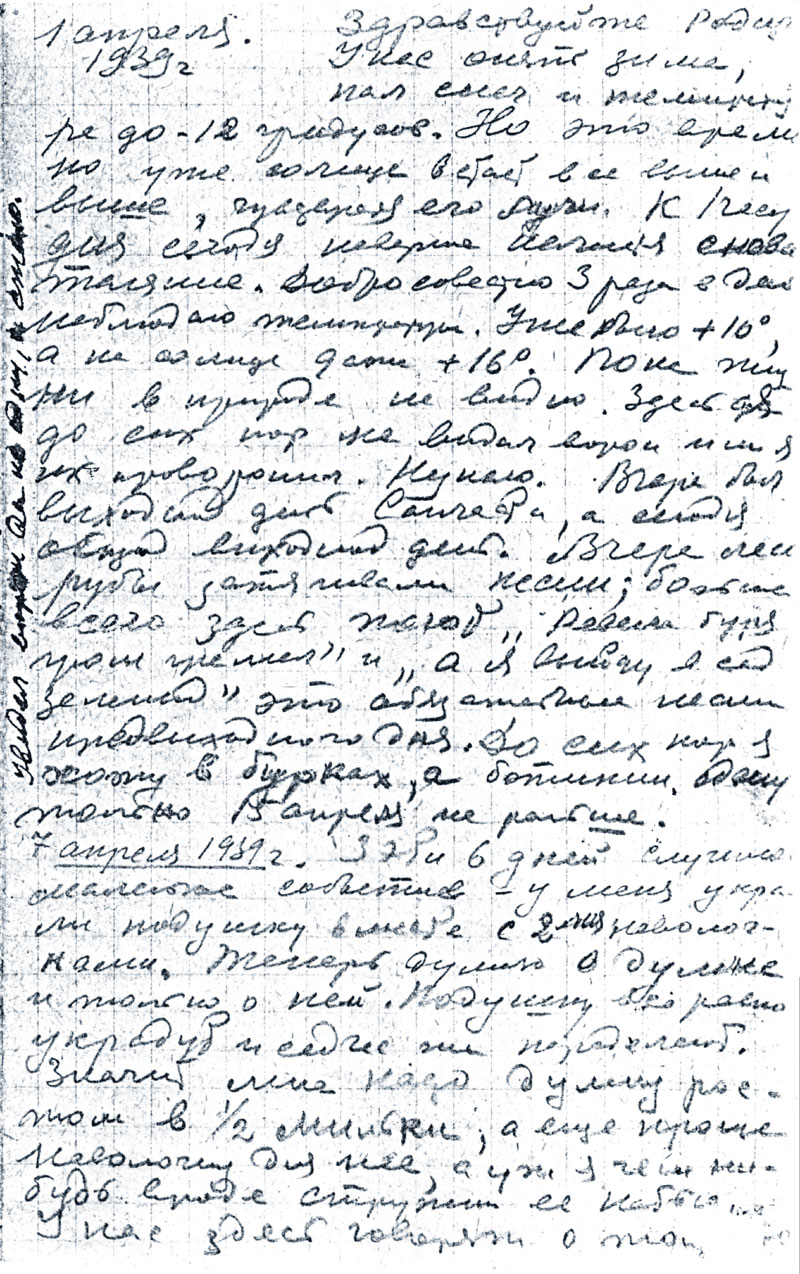 1 апреля.
1939 г
Здравствуйте Роди
У нас опять зима,
пал снег и температу
ре до -12 градусов. Но это време
но уже солнце встает все выше и
выше, чудесные его лучи. К 1 часу
дня сегодня, наверно начнется снова
таяние. Добросовестно 3 раза в день
наблюдаю температуру. Уже было +10°,
а на солнце даже +16°. Пока жиз
ни в природе не видно. Здесь
до сих пор не видал ворон или я
их проворонил. Вчера был
выходной день а сегодня
общий выходной день. Вчера лесо
рубы затягивали песни; больше
всего здесь поют „Ревела буря
гром гремел" и „А я выйду в сад
зеленый" это обязательные песни
предвыходного дня. До сих пор я
хожу в бурках, а ботинки одену
только 15 апреля не раньше.
7 апреля 1939 г. За эти 6 дней случило
маленькое событие – у меня укра-
ли подушку вместе с 2мя наволоч-
ками. Теперь думаю о думке
и только о ней. Подушку все равно
украдут и сейчас же переделают.
Значит мне надо думку рос-
том в 1/2 Мильки, а еще проще
наволочку для нее, а уж я чем ни-
будь вроде стружки ее набью
У нас здесь говорят о том,
Увидал ворон да не одну, а стаю.